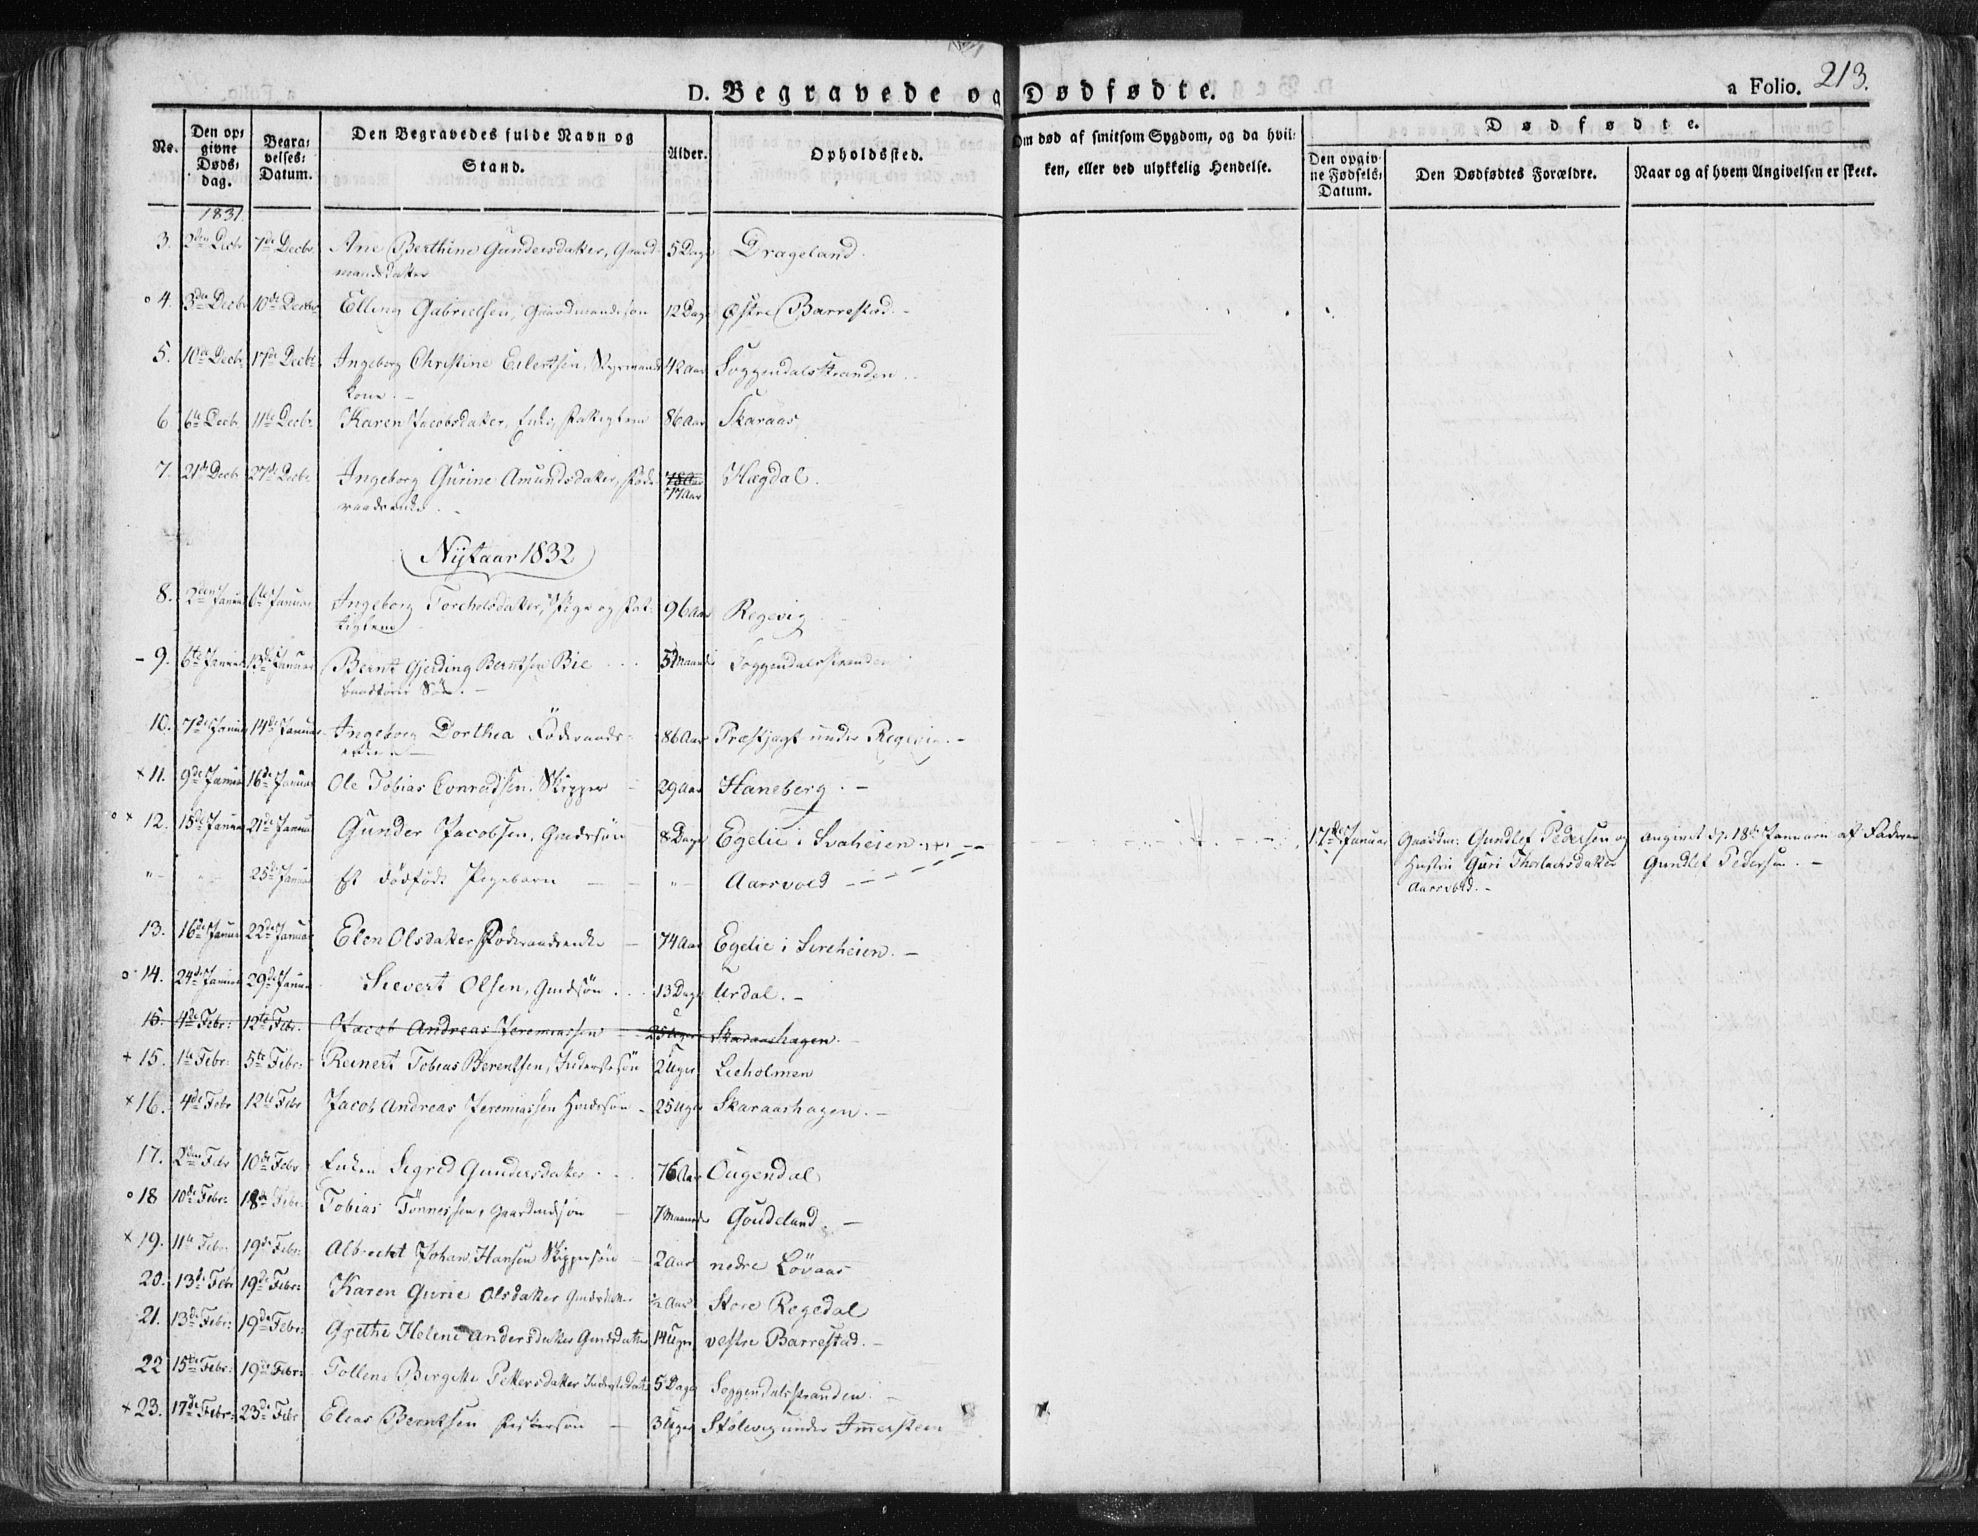 D. Begravede og Dødfødte.
a Folio. 213.
No.
Den op:
givne
Døds:
dag.
Begra:
velses:
Datum.
Den Begravedes fulde Navn og
Stand.
Alder.
Opholdssted.
Om død af smitsom Sygdom, og da hvil:
ken, eller ved ulykkelig Hendelse.
Dødfødte.
Den opgiv:
ne Fødsels:
Datum.
Den Dødfødtes Forældre.
Naar og af hvem Angivelsen er skeet.
1831.
3. 2den Decbr 7de Decbr Ane Berthine Gundersdatter, Gaard 5 Dage Drageland.
mandsdatter
4. 3die Decbr 10de Decbr Elling Gabrielsen, Gaardmandssøn 12 Dage Østre Barrestad.
5. 10de Decbr 17de Decbr Ingeborg Christine Eilertsen, Styrmands 42 Aar Soggendalsstranden.
Kone.
6 6te Decbr 11te Decbr Karen Jacobsdatter, Enke, 86 Aar Skaraas
7. 21de Decbr 27de Decbr Ingeborg Gurine Amundsdatter, Føde 78 Aar Hægdal.
raadsenke. 77 Aar
Nytaar 1832
8. 2den Januar 6te Januar Ingeborg Torchelsdatter, Pige og Fat- 96 Aar Regevig
tiglem
9. 6te Januar 13de Januar Bernt Gjerding Berntsen Bie 5 Maaneder Soggendalsstranden
Søn.
10. 7de Januar 14de Januar Ingeborg Dorthea Føderaads- 86 Aar Præstjagt under Regevig.
enke
11. 9de Januar 16de Januar Ole Tobias Conradsen, Skipper 29 Aar Haneberg.
12. 15de Januar 21de Januar Gunder Jacobsen, Gmdssøn 8 Dage Egelie i Svaheien
" " 25de Januar Et dødfødt Pigebarn " Aarsvold
17de Januar Gaardm: Gundlef Pedersen og Angivet d. 18de Januarii af Faderen
Hustru Guri Thorlachsdatter Gundlef Pedersen.
Aarsvold.
13. 16de Januar 22de Januar Elen Olsdatter Føderaadsenke 74 Aar Egelie i Sireheien.
14. 24de Januar 29de Januar Sievert Olsen, Gmdsøn 13 Dage Urdal.
15. 4de Febr: 12te Febr. Jacob Andreas Jeremiassen 25 Uger Skaraashagen.
15. 1te Febr: 5te Febr: Reinert Tobias Berentsen, Inderstesøn 2 Uger Lieholmen
16. 4de Febr 12te Febr Jacob Andreas Jeremiassen Hmdssøn 25 Uger Skaraashagen.
17. 2den Febr 10de Febr Enken Segred Gundersdatter 76 Aar Ougendal
18 10de Febr: 18de Febr: Tobias Tönnessen, Gaardmdsøn 7 Maaneder Goudeland.
19. 11te Febr. 19de Febr: Albrecht Johan Hansen Skippersøn 2 Aar nedre Lövaas
20. 13de Febr 19de Febr: Karen Gurie Olsdatter Gmdsdatter ½ Aar Store Regedal
21. 13de Febr: 19de Febr: Grethe Helene Andersdatter Gmdsdatter 14 Uger vestre Barrestad.
22 15de Febr: 19de Febr: Tollene Birgitte Pettersdatter Inderstedatter 5 Dage Soggendalsstranden.
23. 17de Febr: 23de Febr Elias Berntsen 3 Uger Stölevig under Immersteen